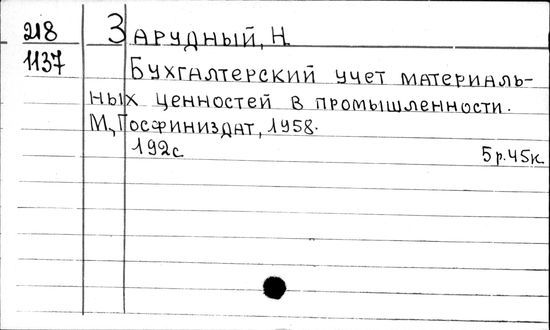 218 ЗАРУДНЫЙ, Н.
1137 БУХГАЛТЕРСКИЙ УЧЕТ МАТЕРИАЛЬ-
НЫХ ЦЕННОСТЕЙ В ПРОМЫШЛЕННОСТИ.
М., ГОСФИНИЗДАТ, 1958.
192с 5р.45к.